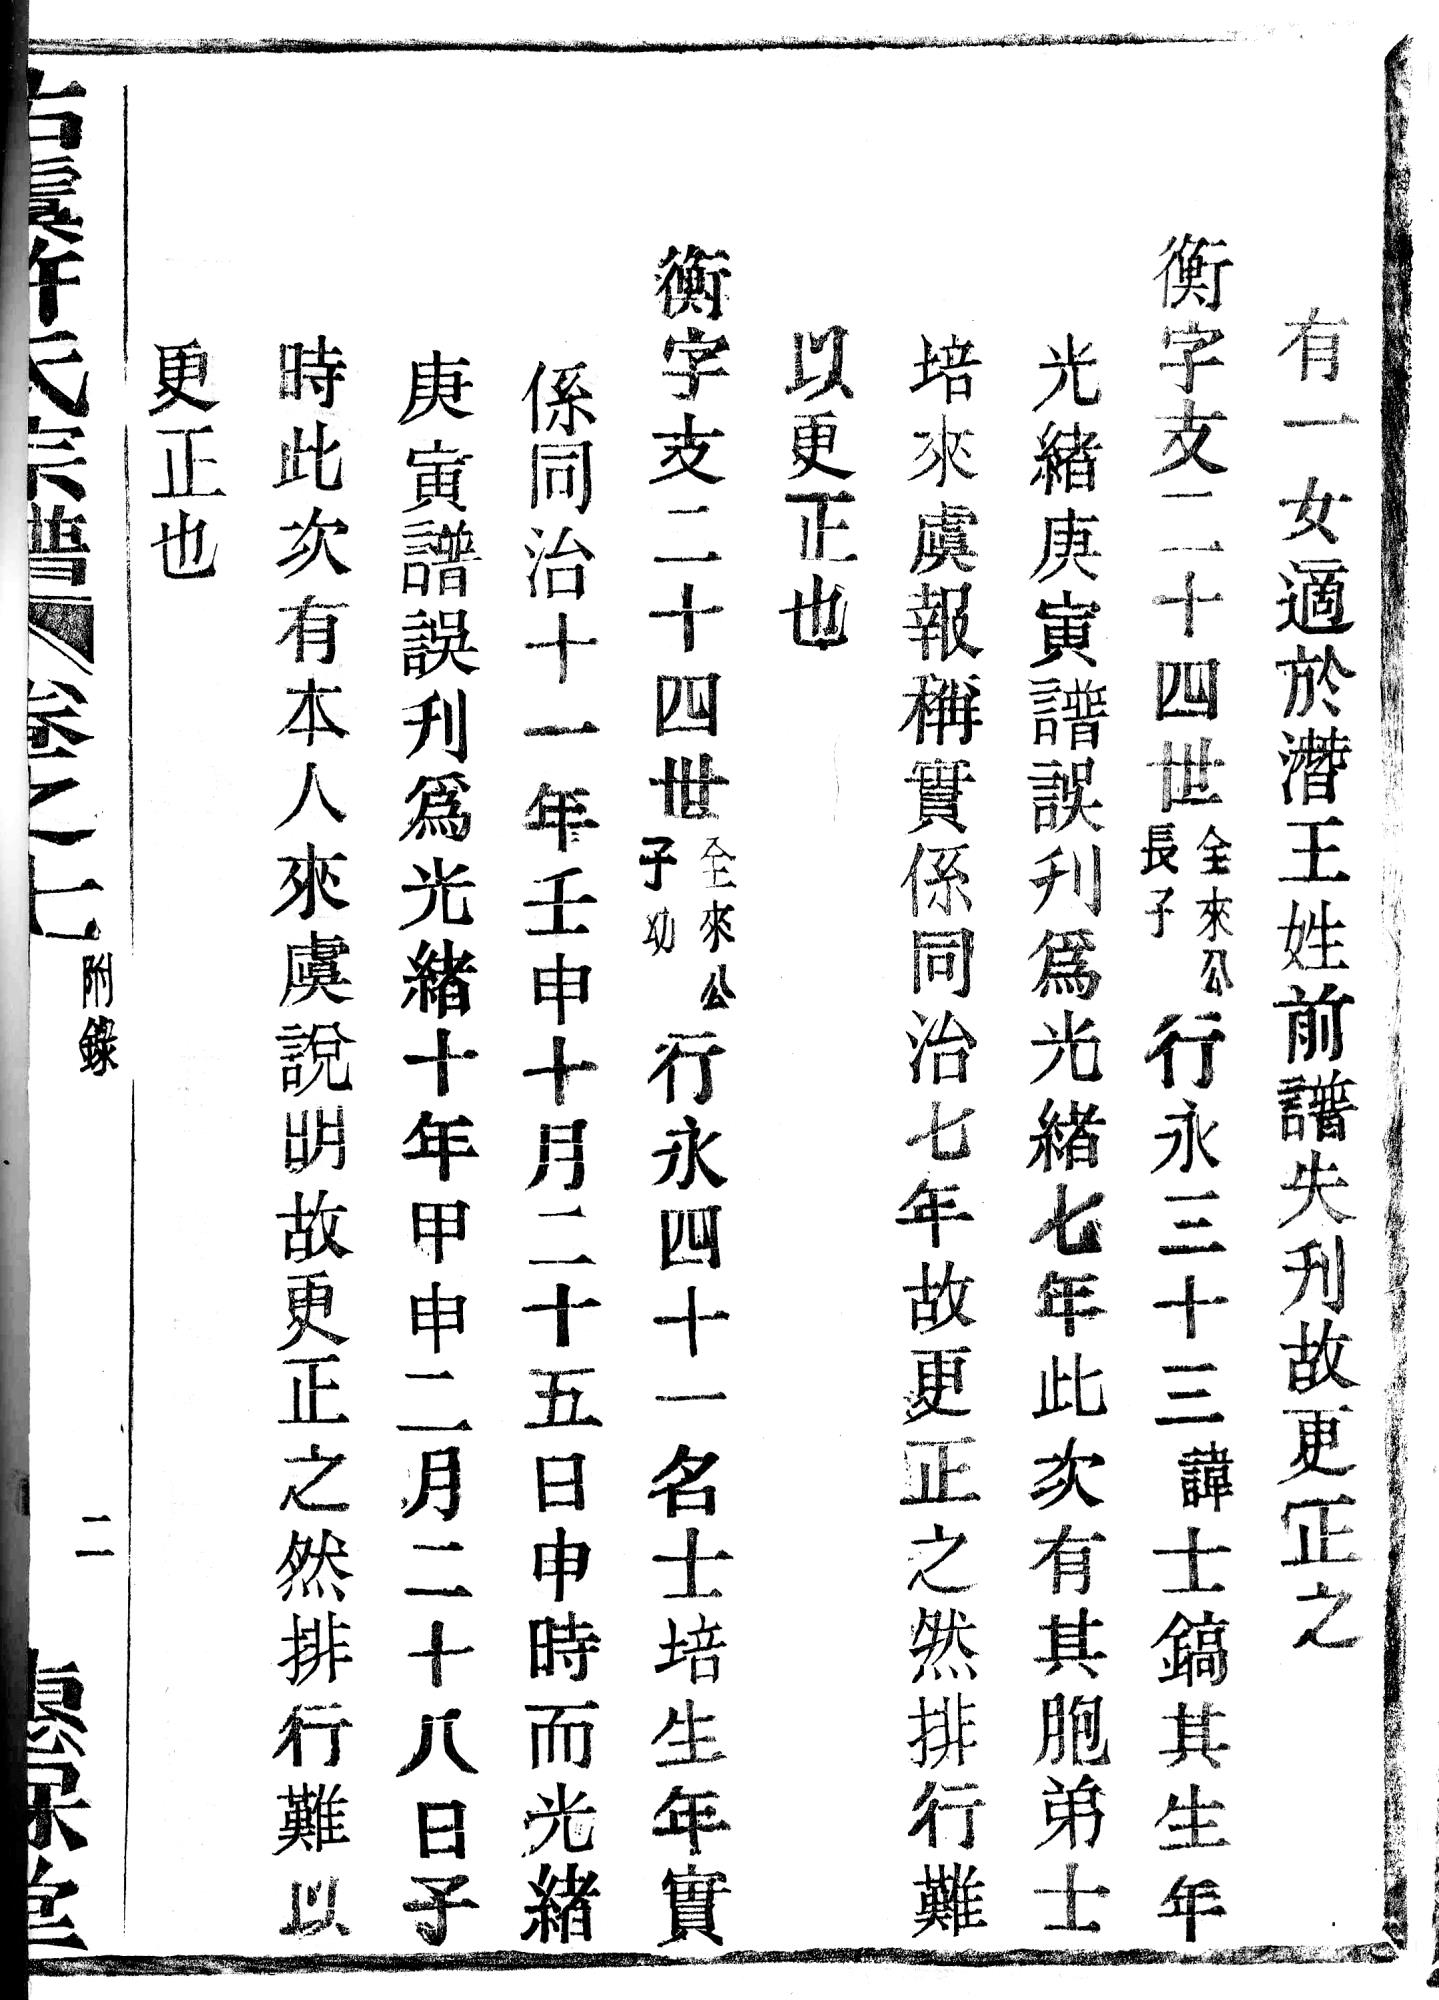 有一女適於潛王姓前譜失刊故更正之
衡字支二十四世全來公長子行永三十三諱士鎬其生年
光緒庚寅譜誤刋爲光緒七年此次有其胞弟士
培來虞報稱實係同治七年故更正之然排行難
以更正也
衡字支二十四世全來公幼子行永四十一名士培生年實
係同治十一年壬申十月二十五日申時而光緒
庚寅譜誤刋爲光緒十年甲申二月二十八日子
時此次有本人來虞說明故更正之然排行難以
更正也
古虞許氏宗譜 卷之七 附錄 二 堂